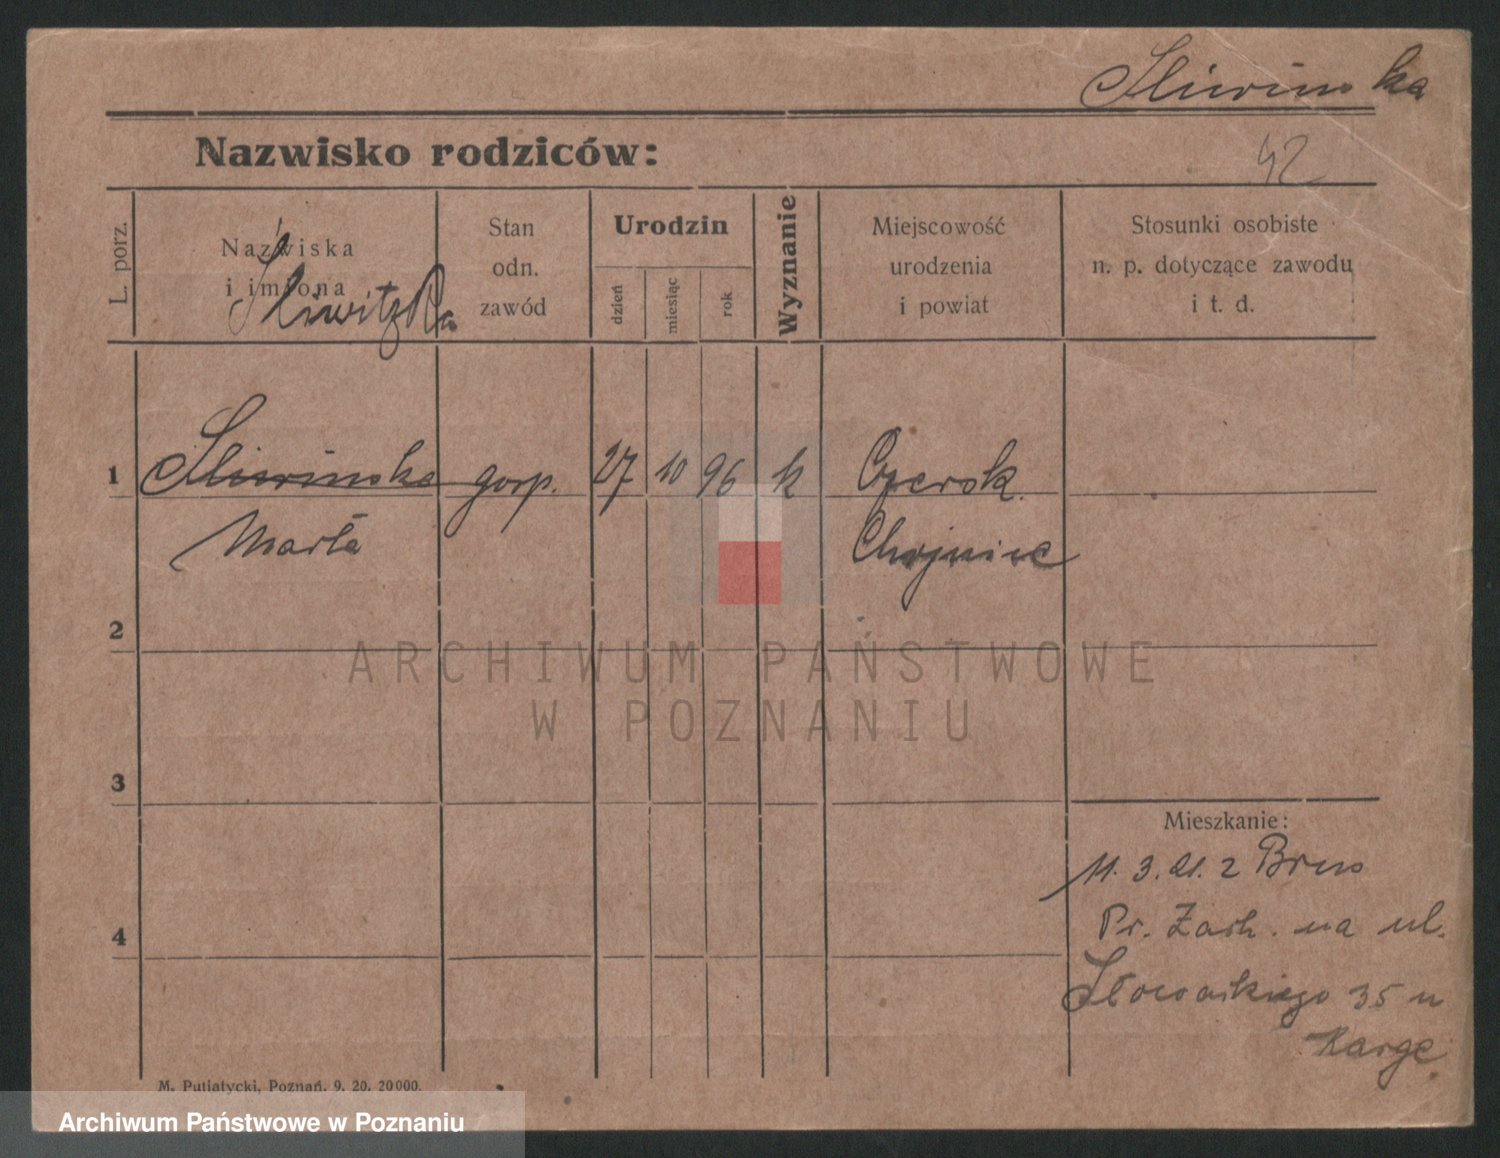 Sliwinska
Nazwisko rodziców:
42
L. porz.
Nazwiska
i imiona
Śliwitzka
Stan
odn.
zawód
Urodzin
dzień
miesiąc
rok
Wyznanie
Miejscowość
urodzenia
i powiat
Stosunki osobiste
n. p. dotyczące zawodu
i t. d.
1 Sliwinska gosp. 27 10 96 k Czersk.
Marta Chojnice
2
3
4
Mieszkanie:
11. 3. 21. z Brus
Pr. Zach. na ul.
Słowackiego 35 u
Karge.
M. Putiatycki, Poznań. 9. 20. 20000.
ARCHIWUM PAŃSTWOWE
W POZNANIU
Archiwum Państwowe w Poznaniu